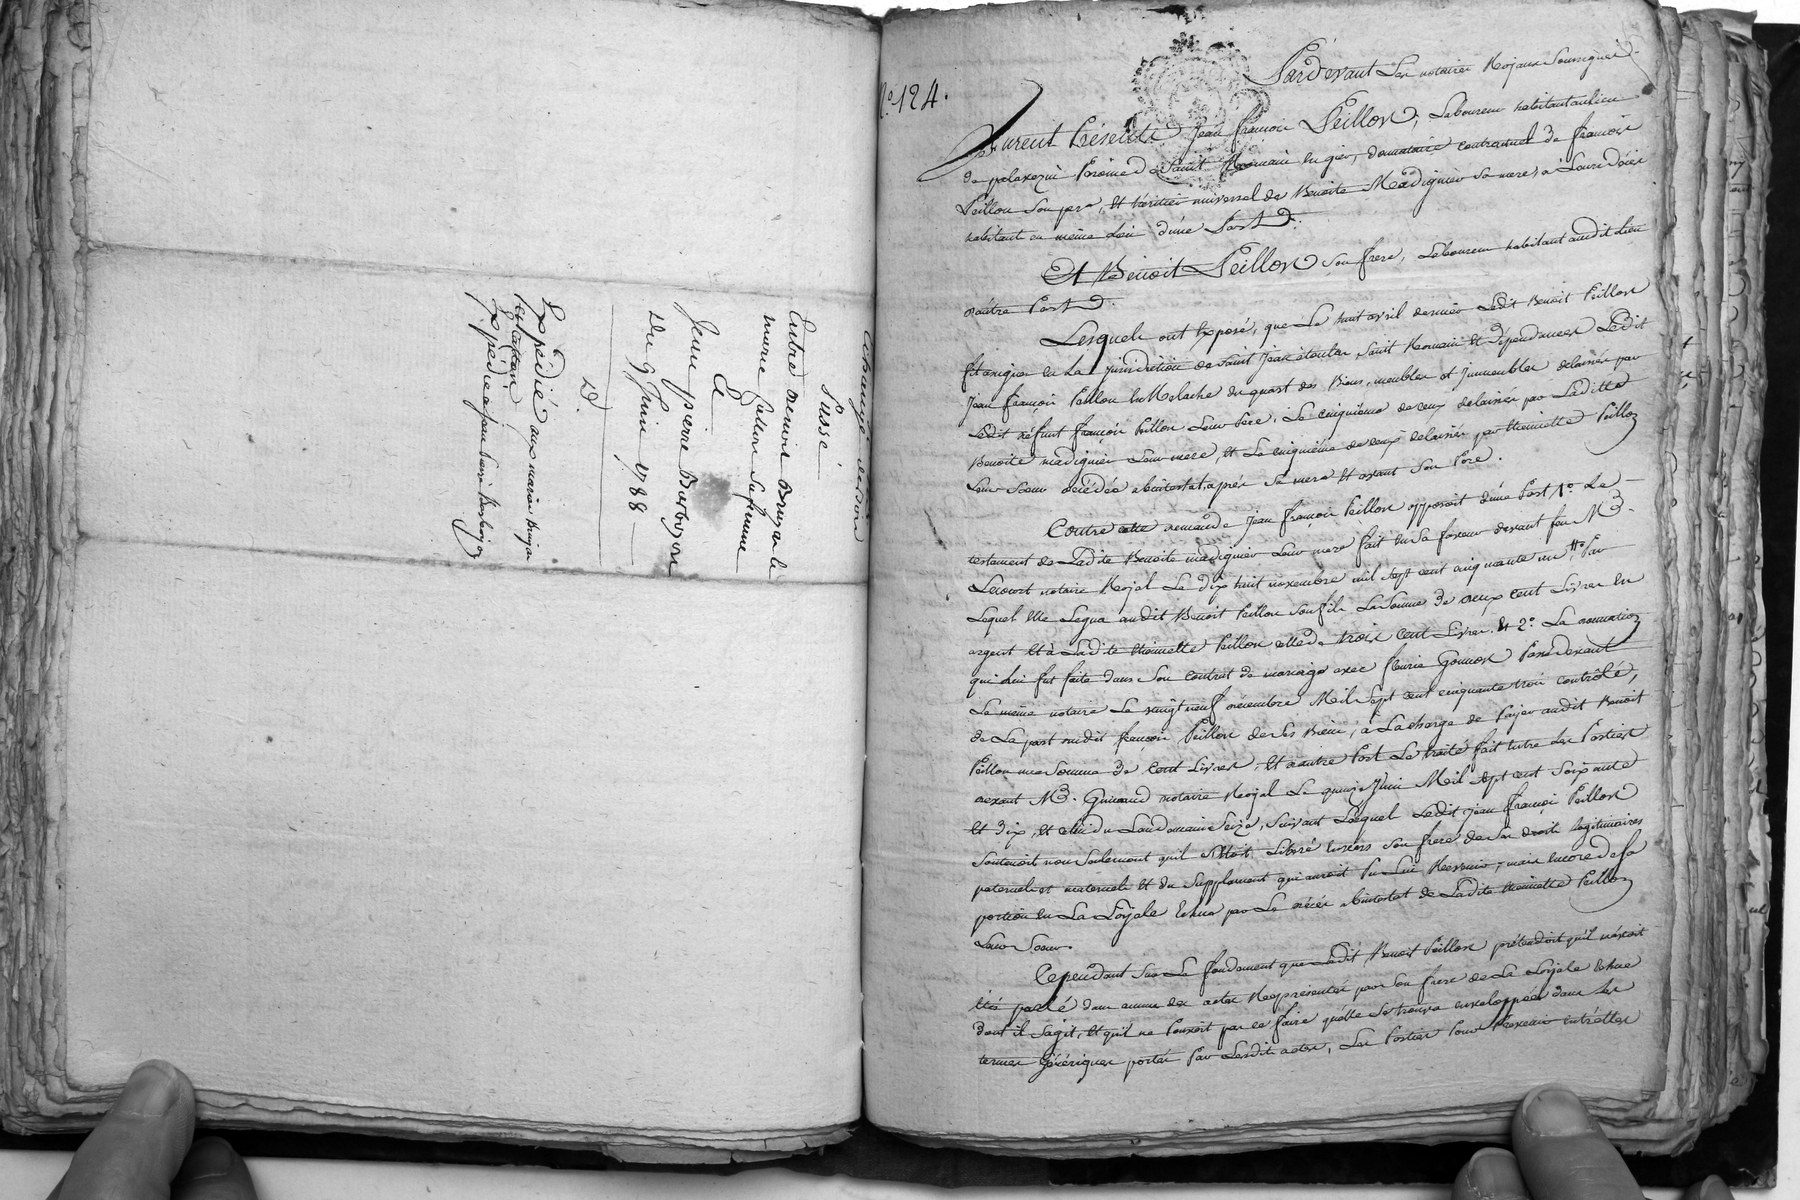 Echange verson
Passé
Entre Benoit Bruyas le
mure Jullien Sa femme
&
Jean pierre Barbojon
Du 9 Juin 1788
D.
Expédié aux mariés Bruyas
Expédié a Jean pierre Barbojon
N.o 124.
Pardevant Les notaires Royaux Soussignés
furent Présents Jean françois Peillon, Laboureur habitant au lieu
de palaxezin Paroisse de Saint Romain en gier, donataire contractuel de françois
Peillon Son pere, et héritier universel de Benoite Madignier Sa mere, a Leurs décès
habitants en même Lieu d'une Part.
Et Benoit Peillon Son frere, Laboureur habitant audit Lieu
d'autre Part.
Lesquels ont Exposé, que Le huit avril dernier Ledit Benoit Peillon
fit assigner en La jurisdiction de Saint Jean à toulas Saint Romain et Dépendances Ledit
Jean François Peillon En Relache du quart des Biens, meubles et Immeubles delaissés par
Ledit défunt françois Peillon Leur Pere, Le cinquieme de ceux delaissés par Laditte
Benoite madignier Leur mere, et Le cinquiéme de ceux delaissés par Etiennette Peillon
Leur Soeur décédée abintestat, après Sa mere et avant Son Pere.
Contre cette demande Jean françois Peillon opposoit d'une Part 1.o Le
testament de Ladite Benoite madignier Leur mere fait En Sa faveur devant feu M.e
Lecourt notaire Royal Le dix huit novembre mil Sept cent cinquante un, Par
Lequel Elle Legua audit Benoit Peillon Son fils La Somme de deux cent Livres En
argent Et à Ladite Etiennette Peillon celle de trois cent Livres. Et 2.o La donation
qui Lui fut faite dans Son contrat de mariage avec fleurie Gonnon Passé devant
Le même notaire Le vingt neuf décembre Mil Sept cent cinquante trois contrôlé,
de La part dudit françois Peillon de Ses Biens, a La charge de Payer audit Benoit
Peillon une Somme de Cent Livres, Et d'autre Part Le traité fait Entre Les Parties
devant M.e Guinand notaire Royal Le quinze Juin Mil Sept cent Soixante
Et dix, et celui du Lendemain Seize, Suivant Lesquels Ledit Jean françois Peillon
Soutenoit non Seulement qu'il S'étoit Libéré Envers Son frere de Ses droits Légitimaires
paternels et maternels Et du Supplement qui auroit Pu Lui Revenir, mais Encore de Sa
portion En La Loyale Echue par Le décès abintestat de Ladite Etiennette Peillon
Leur Soeur.
Cependant Sur Le fondement que Ledit Benoit Peillon prétendoit qu'il n'avoit
Eté parlé dans aucun des actes Représentés par Son frere de La Loyale Echue
dont il S'agit, et qu'il ne Pouvoit par ce faire qu'elle Se trouva enveloppée dans Les
termes Génériques portés Par Lesdits actes, Les Parties Pour Prevenir entr'elles